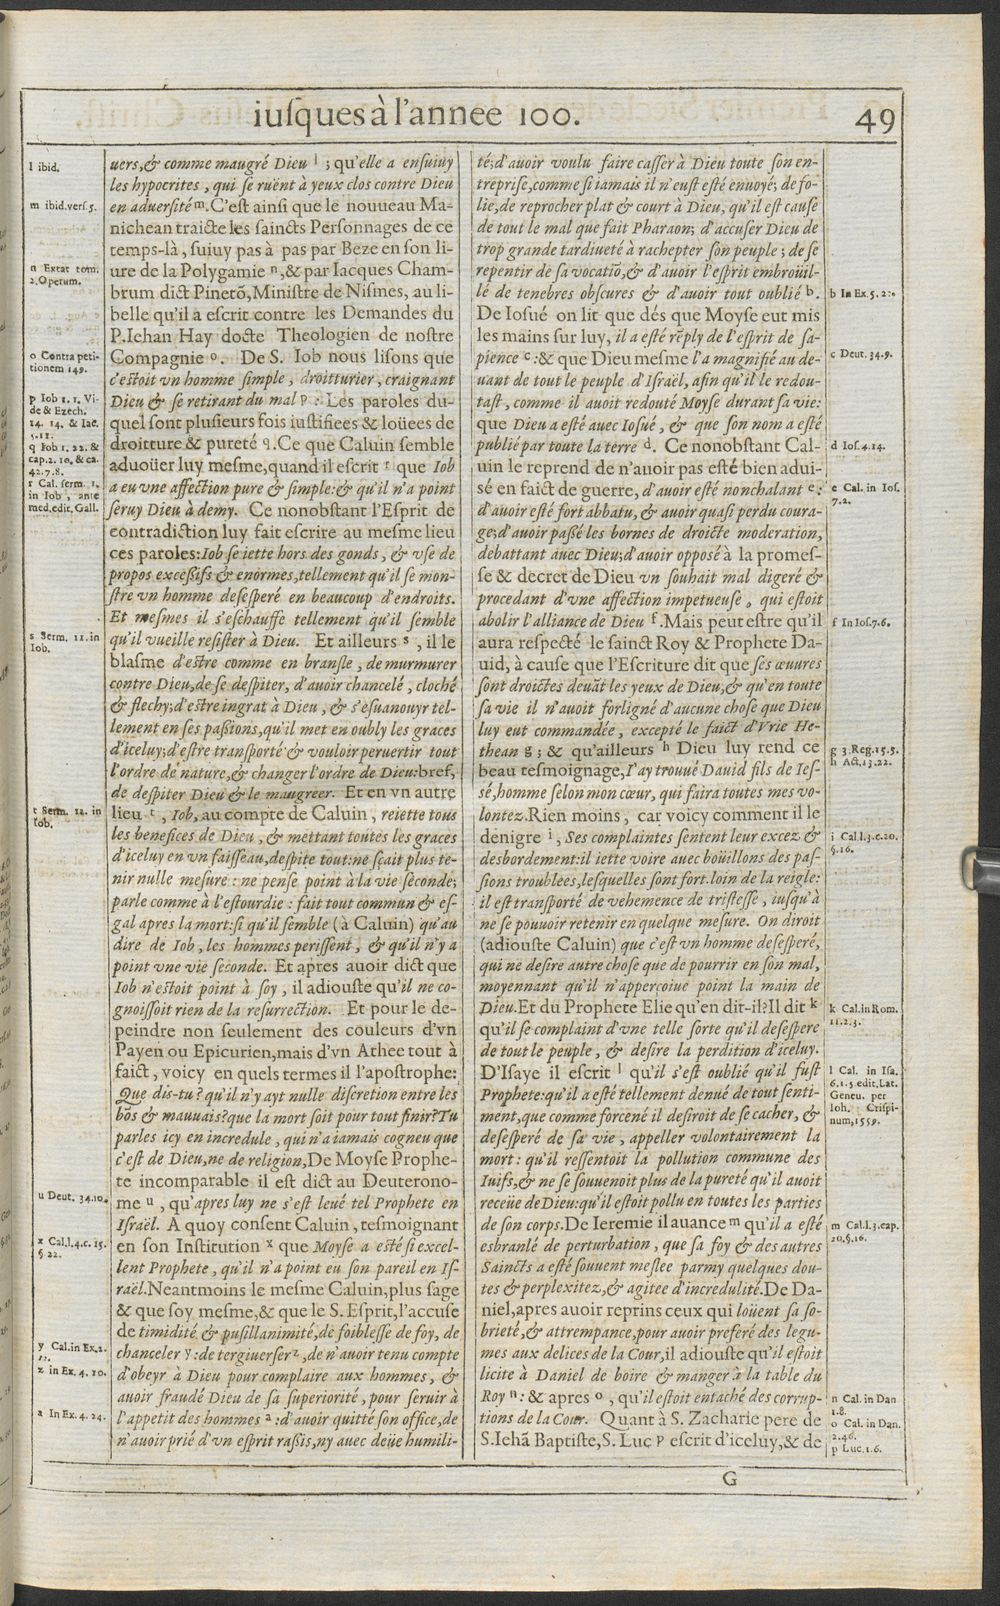 iuſques à l'annee 100.
49
uers,& comme maugré Dieu l ; qu'elle a enſuiuy
les hypocrites , qui ſe ruënt à yeux clos contre Dieu
en aduerſité m. C'eſt ainſi que le nouueau Ma-
nichean traicte les ſaincts Perſonnages de ce
temps-là , ſuiuy pas à pas par Beze en ſon li-
ure de la Polygamie n,& par Iacques Cham-
brum dict Pinetõ, Miniſtre de Niſmes, au li-
belle qu'il a eſcrit contre les Demandes du
P. Iehan Hay docte Theologien de noſtre
Compagnie o. De S. Iob nous liſons que
c'eſtoit vn homme ſimple , droitturier, craignant
Dieu & ſe retirant du mal p : Les paroles du-
quel ſont pluſieurs fois iuſtifiees & loüees de
droitture & pureté q. Ce que Caluin ſemble
aduoüer luy meſme, quand il eſcrit r que Iob
a eu vne affection pure & ſimple:& qu'il n'a point
ſeruy Dieu à demy. Ce nonobſtant l'Eſprit de
contradiction luy fait eſcrire au meſme lieu
ces paroles: Iob ſe iette hors des gonds , & vſe de
propos exceßifs & enormes, tellement qu'il ſe mon-
ſtre vn homme deſeſperé en beaucoup d'endroits.
Et meſmes il s'eſchauffe tellement qu'il ſemble
qu'il vueille reſiſter à Dieu. Et ailleurs s , il le
blaſme d'eſtre comme en branſle , de murmurer
contre Dieu, de ſe deſpiter, d'auoir chancelé , cloché
& flechy; d'eſtre ingrat à Dieu , & s'eſuanouyr tel-
lement en ſes paßions, qu'il met en oubly les graces
d'iceluy; d'eſtre tranſporté & vouloir peruertir tout
l'ordre de nature,& changer l'ordre de Dieu: bref,
de deſpiter Dieu & le maugreer. Et en vn autre
lieu t , Iob, au compte de Caluin , reiette tous
les benefices de Dieu , & mettant toutes les graces
d'iceluy en vn faiſſeau, deſpite tout: ne ſçait plus te-
nir nulle meſure : ne penſe point à la vie ſeconde;
parle comme à l'eſtourdie : fait tout commun & eſ-
gal apres la mort: ſi qu'il ſemble (à Caluin) qu'au
dire de Iob , les hommes periſſent , & qu'il n'y a
point vne vie ſeconde. Et apres auoir dict que
Iob n'eſtoit point à ſoy , il adiouſte qu'il ne co-
gnoiſſoit rien de la reſurrection. Et pour le de-
peindre non ſeulement des couleurs d'vn
Payen ou Epicurien, mais d'vn Athee tout à
faict , voicy en quels termes il l'apoſtrophe:
Que dis-tu? qu'il n'y ayt nulle diſcretion entre les
bõs & mauuais? que la mort ſoit pour tout finir? Tu
parles icy en incredule , qui n'a iamais cogneu que
c'eſt de Dieu, ne de religion, De Moyſe Prophe-
te incomparable il eſt dict au Deuterono-
me u , qu'apres luy ne s'eſt leué tel Prophete en
Iſraël. A quoy conſent Caluin , teſmoignant
en ſon Inſtitution x que Moyſe a eſté ſi excel-
lent Prophete , qu'il n'a point eu ſon pareil en Iſ-
raël. Neantmoins le meſme Caluin, plus ſage
& que ſoy meſme,& que le S. Eſprit, l'accuſe
de timidité & puſillanimité, de foibleſſe de foy, de
chanceler y : de tergiuerſer z , de n'auoir tenu compte
d'obeyr à Dieu pour complaire aux hommes, &
auoir fraudé Dieu de ſa ſuperiorité , pour ſeruir à
l'appetit des hommes a : d'auoir quitté ſon office, de
n'auoir prié d'vn eſprit raßis, ny auec deüe humili-
l ibid.
m ibid. verſ. 5.
n Extat tom.
2. Operum.
o Contra peti-
tionem 149.
p Iob 1. 1. Vi-
de & Ezech.
14. 14. & Iac.
5. 11.
q Iob 1. 22. &
cap. 2. 10. & ca.
42. 7. 8.
r Cal. ſerm. 1.
in Iob , ante
med. edit. Gall.
s Serm. 11. in
Iob.
t Serm. 12. in
Iob.
u Deut. 34. 10.
x Cal. l. 4. c. 15.
§. 22.
y Cal. in Ex. 2.
12.
z in Ex. 4. 10.
a In Ex. 4. 24.
té; d'auoir voulu faire caſſer à Dieu toute ſon en-
trepriſe, comme ſi iamais il n'euſt eſté enuoyé; de fo-
lie, de reprocher plat & court à Dieu, qu'il eſt cauſe
de tout le mal que fait Pharaon; d'accuſer Dieu de
trop grande tardiueté à rachepter ſon peuple ; de ſe
repentir de ſa vocatiõ,& d'auoir l'eſprit embroüil-
lé de tenebres obſcures & d'auoir tout oublié b.
De Ioſué on lit que dés que Moyſe eut mis
les mains ſur luy, il a eſté rẽply de l'eſprit de ſa-
pience c :& que Dieu meſme l'a magnifié au de-
uant de tout le peuple d'Iſraël, afin qu'il le redou-
taſt , comme il auoit redouté Moyſe durant ſa vie:
que Dieu a eſté auec Ioſué , & que ſon nom a eſté
publié par toute la terre d. Ce nonobſtant Cal-
uin le reprend de n'auoir pas eſté bien adui-
ſé en faict de guerre, d'auoir eſté nonchalant e :
d'auoir eſté fort abbatu, & auoir quaſi perdu coura-
ge; d'auoir paßé les bornes de droicte moderation,
debattant auec Dieu; d'auoir oppoſé à la promeſ-
ſe & decret de Dieu vn ſouhait mal digeré &
procedant d'vne affection impetueuſe , qui eſtoit
abolir l'alliance de Dieu f. Mais peut eſtre qu'il
aura reſpecté le ſainct Roy & Prophete Da-
uid, à cauſe que l'Eſcriture dit que ſes œuures
ſont droictes deuãt les yeux de Dieu,& qu'en toute
ſa vie il n'auoit forligné d'aucune choſe que Dieu
luy eut commandée , excepté le faict d'Vrie He-
thean g ; & qu'ailleurs h Dieu luy rend ce
beau teſmoignage, I'ay trouué Dauid fils de Ieſ-
ſé, homme ſelon mon cœur, qui faira toutes mes vo-
lontez. Rien moins , car voicy comment il le
denigre i , Ses complaintes ſentent leur excez &
desbordement: il iette voire auec boüillons des paſ-
ſions troublees, leſquelles ſont fort loin de la reigle:
il eſt tranſporté de vehemence de triſteſſe , iuſqu'à
ne ſe pouuoir retenir en quelque meſure. On diroit
(adiouſte Caluin) que c'eſt vn homme deſeſperé,
qui ne deſire autre choſe que de pourrir en ſon mal,
moyennant qu'il n'apperçoiue point la main de
Dieu. Et du Prophete Elie qu'en dit-il? Il dit k
qu'il ſe complaint d'vne telle ſorte qu'il deſeſpere
de tout le peuple , & deſire la perdition d'iceluy.
D'Iſaye il eſcrit l qu'il s'eſt oublié qu'il fuſt
Prophete: qu'il a eſté tellement denué de tout ſenti-
ment, que comme forcené il deſiroit de ſe cacher, &
deſeſperé de ſa vie , appeller volontairement la
mort : qu'il reſſentoit la pollution commune des
Iuifs,& ne ſe ſouuenoit plus de la pureté qu'il auoit
receüe de Dieu: qu'il eſtoit pollu en toutes les parties
de ſon corps. De Ieremie il auance m qu'il a eſté
esbranlé de perturbation , que ſa foy & des autres
Saincts a eſté ſouuent meſlee parmy quelques dou-
tes & perplexitez, & agitee d'incredulité. De Da-
niel, apres auoir reprins ceux qui loüent ſa ſo-
brieté ,& attrempance, pour auoir preferé des legu-
mes aux delices de la Cour, il adiouſte qu'il eſtoit
licite à Daniel de boire & manger à la table du
Roy n : & apres o , qu'il eſtoit entaché des corrup-
tions de la Cour. Quant à S. Zacharie pere de
S. Iehã Baptiſte, S. Luc p eſcrit d'iceluy,& de
b In Ex. 5. 22.
c Deut. 34. 9.
d Ioſ. 4. 14.
e Cal. in Ioſ.
7. 2.
f In Ioſ. 7. 6.
g 3. Reg. 15. 5.
h Act. 13. 22.
i Cal. l. 3. c. 20.
§. 16.
k Cal. in Rom.
11. 2. 3.
l Cal. in Iſa.
6. 1. 5 edit. Lat.
Geneu. per
Ioh. Criſpi-
num, 1559.
m Cal. l. 3. cap.
20. §. 16.
n Cal. in Dan
1. 8.
o Cal. in Dan.
2. 46.
p Luc. 1. 6.
G